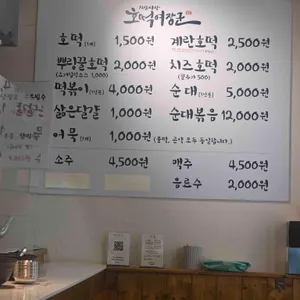 호떡여장군
호떡(1개) 1,500원
뿌링꿀호떡 2,000원
떡볶이(1인분) 4,000원
삶은달걀 1,000원
어묵(1개) 1,000원
소주 4,500원
계란호떡 2,500원
치즈호떡 2,000원
순대(1인분) 5,000원
순대볶음 12,000원
맥주 4,500원
음료수 2,000원